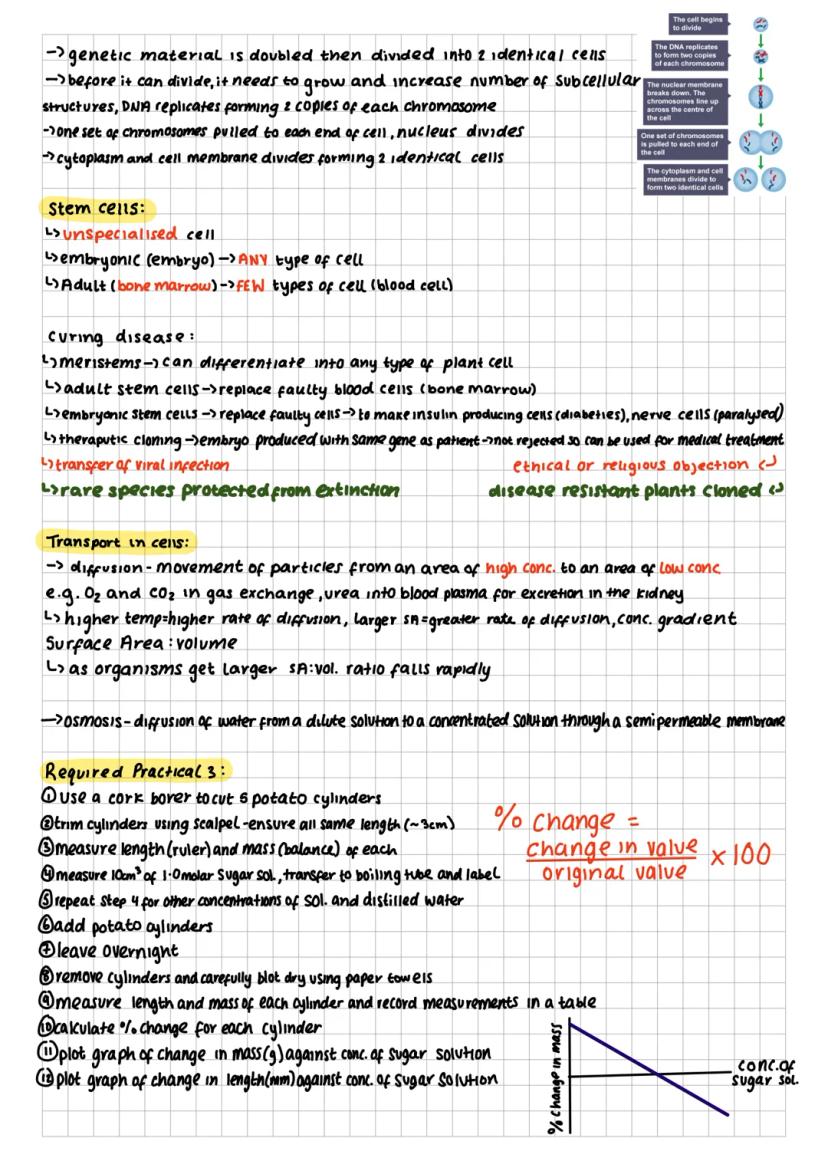 The cell begins
to divide
The DNA replicates
to form two copies
of each chromosome
The nuclear membrane
breaks down. The
chromosomes line up
across the centre of
the cell
One set of chromosomes
is pulled to each end of
the cell
The cytoplasm and cell
membranes divide to
form two identical cells
→ genetic material is doubled then divided into 2 identical cells
→ before it can divide, it needs to grow and increase number of subcellular
structures, DNA replicates forming 2 copies of each chromosome
→ one set of chromosomes pulled to each end of cell, nucleus divides
→ cytoplasm and cell membrane divides forming 2 identical cells
Stem cells:
↳ unspecialised cell
↳ embryonic (embryo) → ANY type of cell
↳ Adult (bone marrow) → FEW types of cell (blood cell)
curing disease:
↳ meristems → can differentiate into any type of plant cell
↳ adult stem cells → replace faulty blood cells (bone marrow)
↳ embryonic stem cells → replace faulty cells → to make insulin producing cells (diabeties), nerve cells (paralysed)
↳ theraputic cloning → embryo produced with same gene as patient → not rejected so can be used for medical treatment
↳ transfer of viral infection ethical or religious objection ↲
↳ rare species protected from extinction disease resistant plants cloned ↲
Transport in cells:
→ diffusion - movement of particles from an area of high conc. to an area of low conc
e.g. O₂ and CO₂ in gas exchange, urea into blood plasma for excretion in the kidney
↳ higher temp=higher rate of diffusion, larger SA=greater rate of diffusion, conc. gradient
Surface Area : volume
↳ as organisms get larger SA:vol. ratio falls rapidly
→ osmosis - diffusion of water from a dilute solution to a concentrated solution through a semi permeable membrane
Required Practical 3:
① use a cork borer to cut 6 potato cylinders
② trim cylinders using scalpel - ensure all same length (~3cm)
③ measure length (ruler) and mass (balance) of each
④ measure 10cm³ of 1.0 molar sugar sol., transfer to boiling tube and label
⑤ repeat step 4 for other concentrations of sol. and distilled water
⑥ add potato cylinders
⑦ leave overnight
⑧ remove cylinders and carefully blot dry using paper towels
⑨ measure length and mass of each cylinder and record measurements in a table
⑩ calculate % change for each cylinder
⑪ plot graph of change in mass(g) against conc. of sugar solution
⑫ plot graph of change in length(mm) against conc. of sugar solution
% change =
change in value
original value
x 100
% change in mass
conc. of
sugar sol.